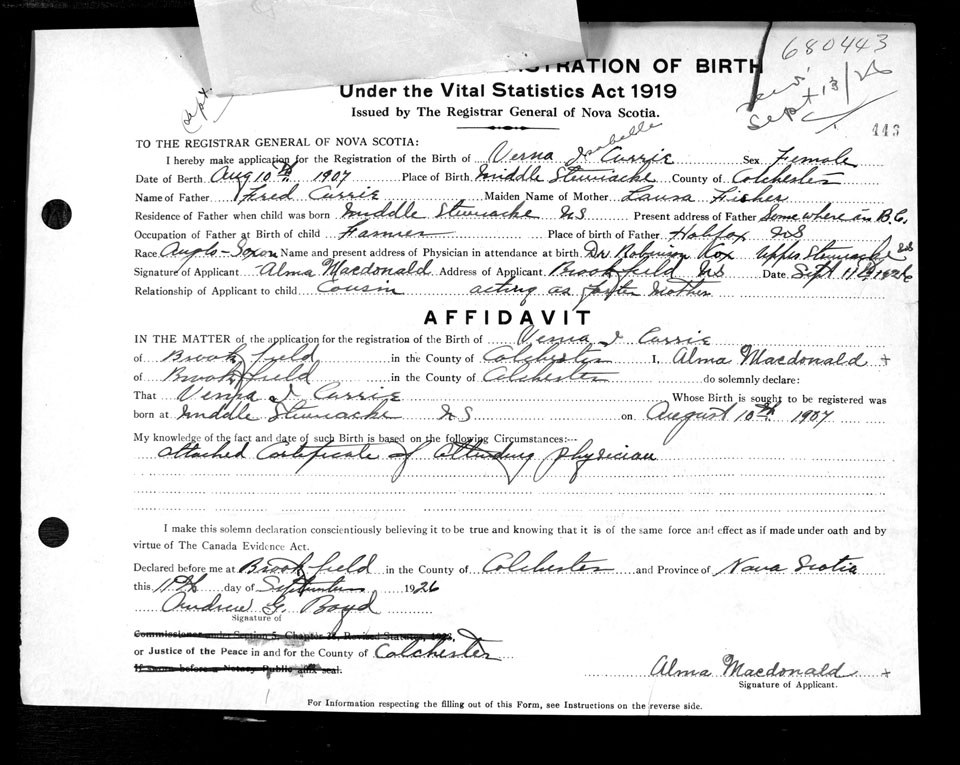 680443
Sept 13/26
Sept
443
ISTRATION OF BIRTH
Under the Vital Statistics Act 1919
Issued by The Registrar General of Nova Scotia.
TO THE REGISTRAR GENERAL OF NOVA SCOTIA:
Isabelle
I hereby make application for the Registration of the Birth of Verna I Currie Sex Female
Date of Birth Aug 10th 1907 Place of Birth Middle Stewiacke County of Colchester
Name of Father Fred Currie Maiden Name of Mother Laura Fisher
Residence of Father when child was born Middle Stewiacke NS Present address of Father Some where in B.C.
Occupation of Father at Birth of child Farmer Place of birth of Father Halifax NS
Race Anglo-Saxon Name and present address of Physician in attendance at birth Dr Robinson Cox Upper Stewiacke NS
Signature of Applicant Alma Macdonald Address of Applicant Brookfield NS Date Sept 11th 1926
Relationship of Applicant to child Cousin acting as foster Mother
AFFIDAVIT
IN THE MATTER of the application for the registration of the Birth of Verna I Currie
of Brookfield in the County of Colchester I, Alma Macdonald +
of Brookfield in the County of Colchester do solemnly declare:
That Verna I Currie Whose Birth is sought to be registered was
born at Middle Stewiacke NS on August 10th 1907
My knowledge of the fact and date of such Birth is based on the following Circumstances:---
attached Certificate of attending physician
I make this solemn declaration conscientiously believing it to be true and knowing that it is of the same force and effect as if made under oath and by
virtue of The Canada Evidence Act.
Declared before me at Brookfield in the County of Colchester and Province of Nova Scotia
this 11th day of September 1926
Andrew G. Boyd
Signature of
Commissioner under Section 5, Chapter 38, Revised Statutes, 1923,
or Justice of the Peace in and for the County of Colchester
If sworn before a Notary Public affix seal.
Alma Macdonald +
Signature of Applicant.
For Information respecting the filling out of this Form, see Instructions on the reverse side.